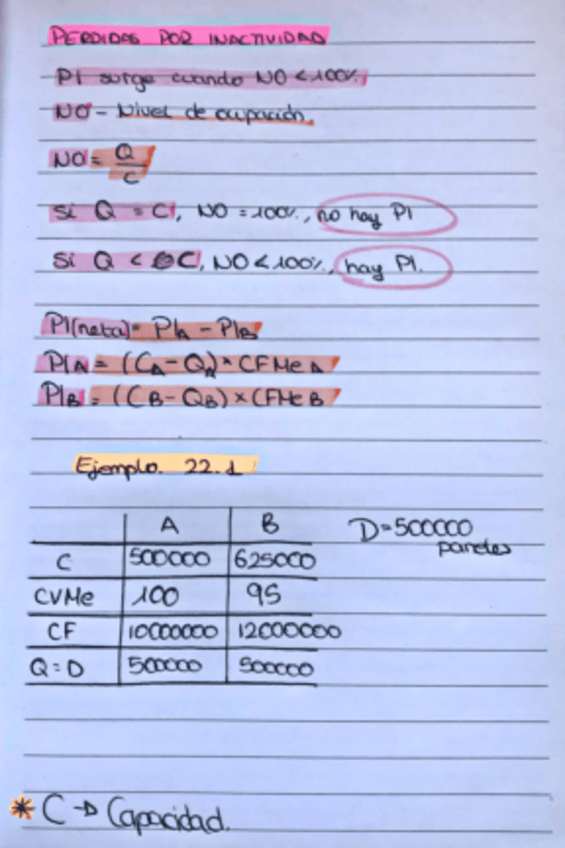 PERDIDAS POR INACTIVIDAD
PI surge cuando NO < 100%
NO - Nivel de ocupación.
NO = Q/C
Si Q = C, NO = 100%, no hay PI
Si Q < C, NO < 100%, hay PI.
PI(neta) = PIA - PIB
PIA = (CA - QA) × CFMe A
PIB = (CB - QB) × CFMe B
Ejemplo. 22.1
A B D=500000
paneles
C 500000 625000
CVMe 100 95
CF 10000000 12000000
Q=D 500000 500000
* C → Capacidad.